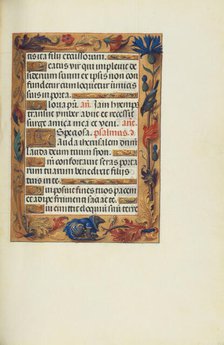 tis ita filii excussorum.
Beatus vir qui implevit de
siderium suum ex ipsis non con
fundetur cum loquetur inimicis
suis in porta.
Gloria pri. añ. Jam hyemps
transiit ymber abiit et recessit
surge amica mea et veni. añ.
Speciosa. psalmus. d
Lauda iherusalem dominum
lauda deum tuum sion.
Quoniam confortavit seras porta
rum tuarum benedixit filiis
tuis in te.
Qui posuit fines tuos pacem
et adipe frumenti satiat te
Qui emittit eloquium suum terre